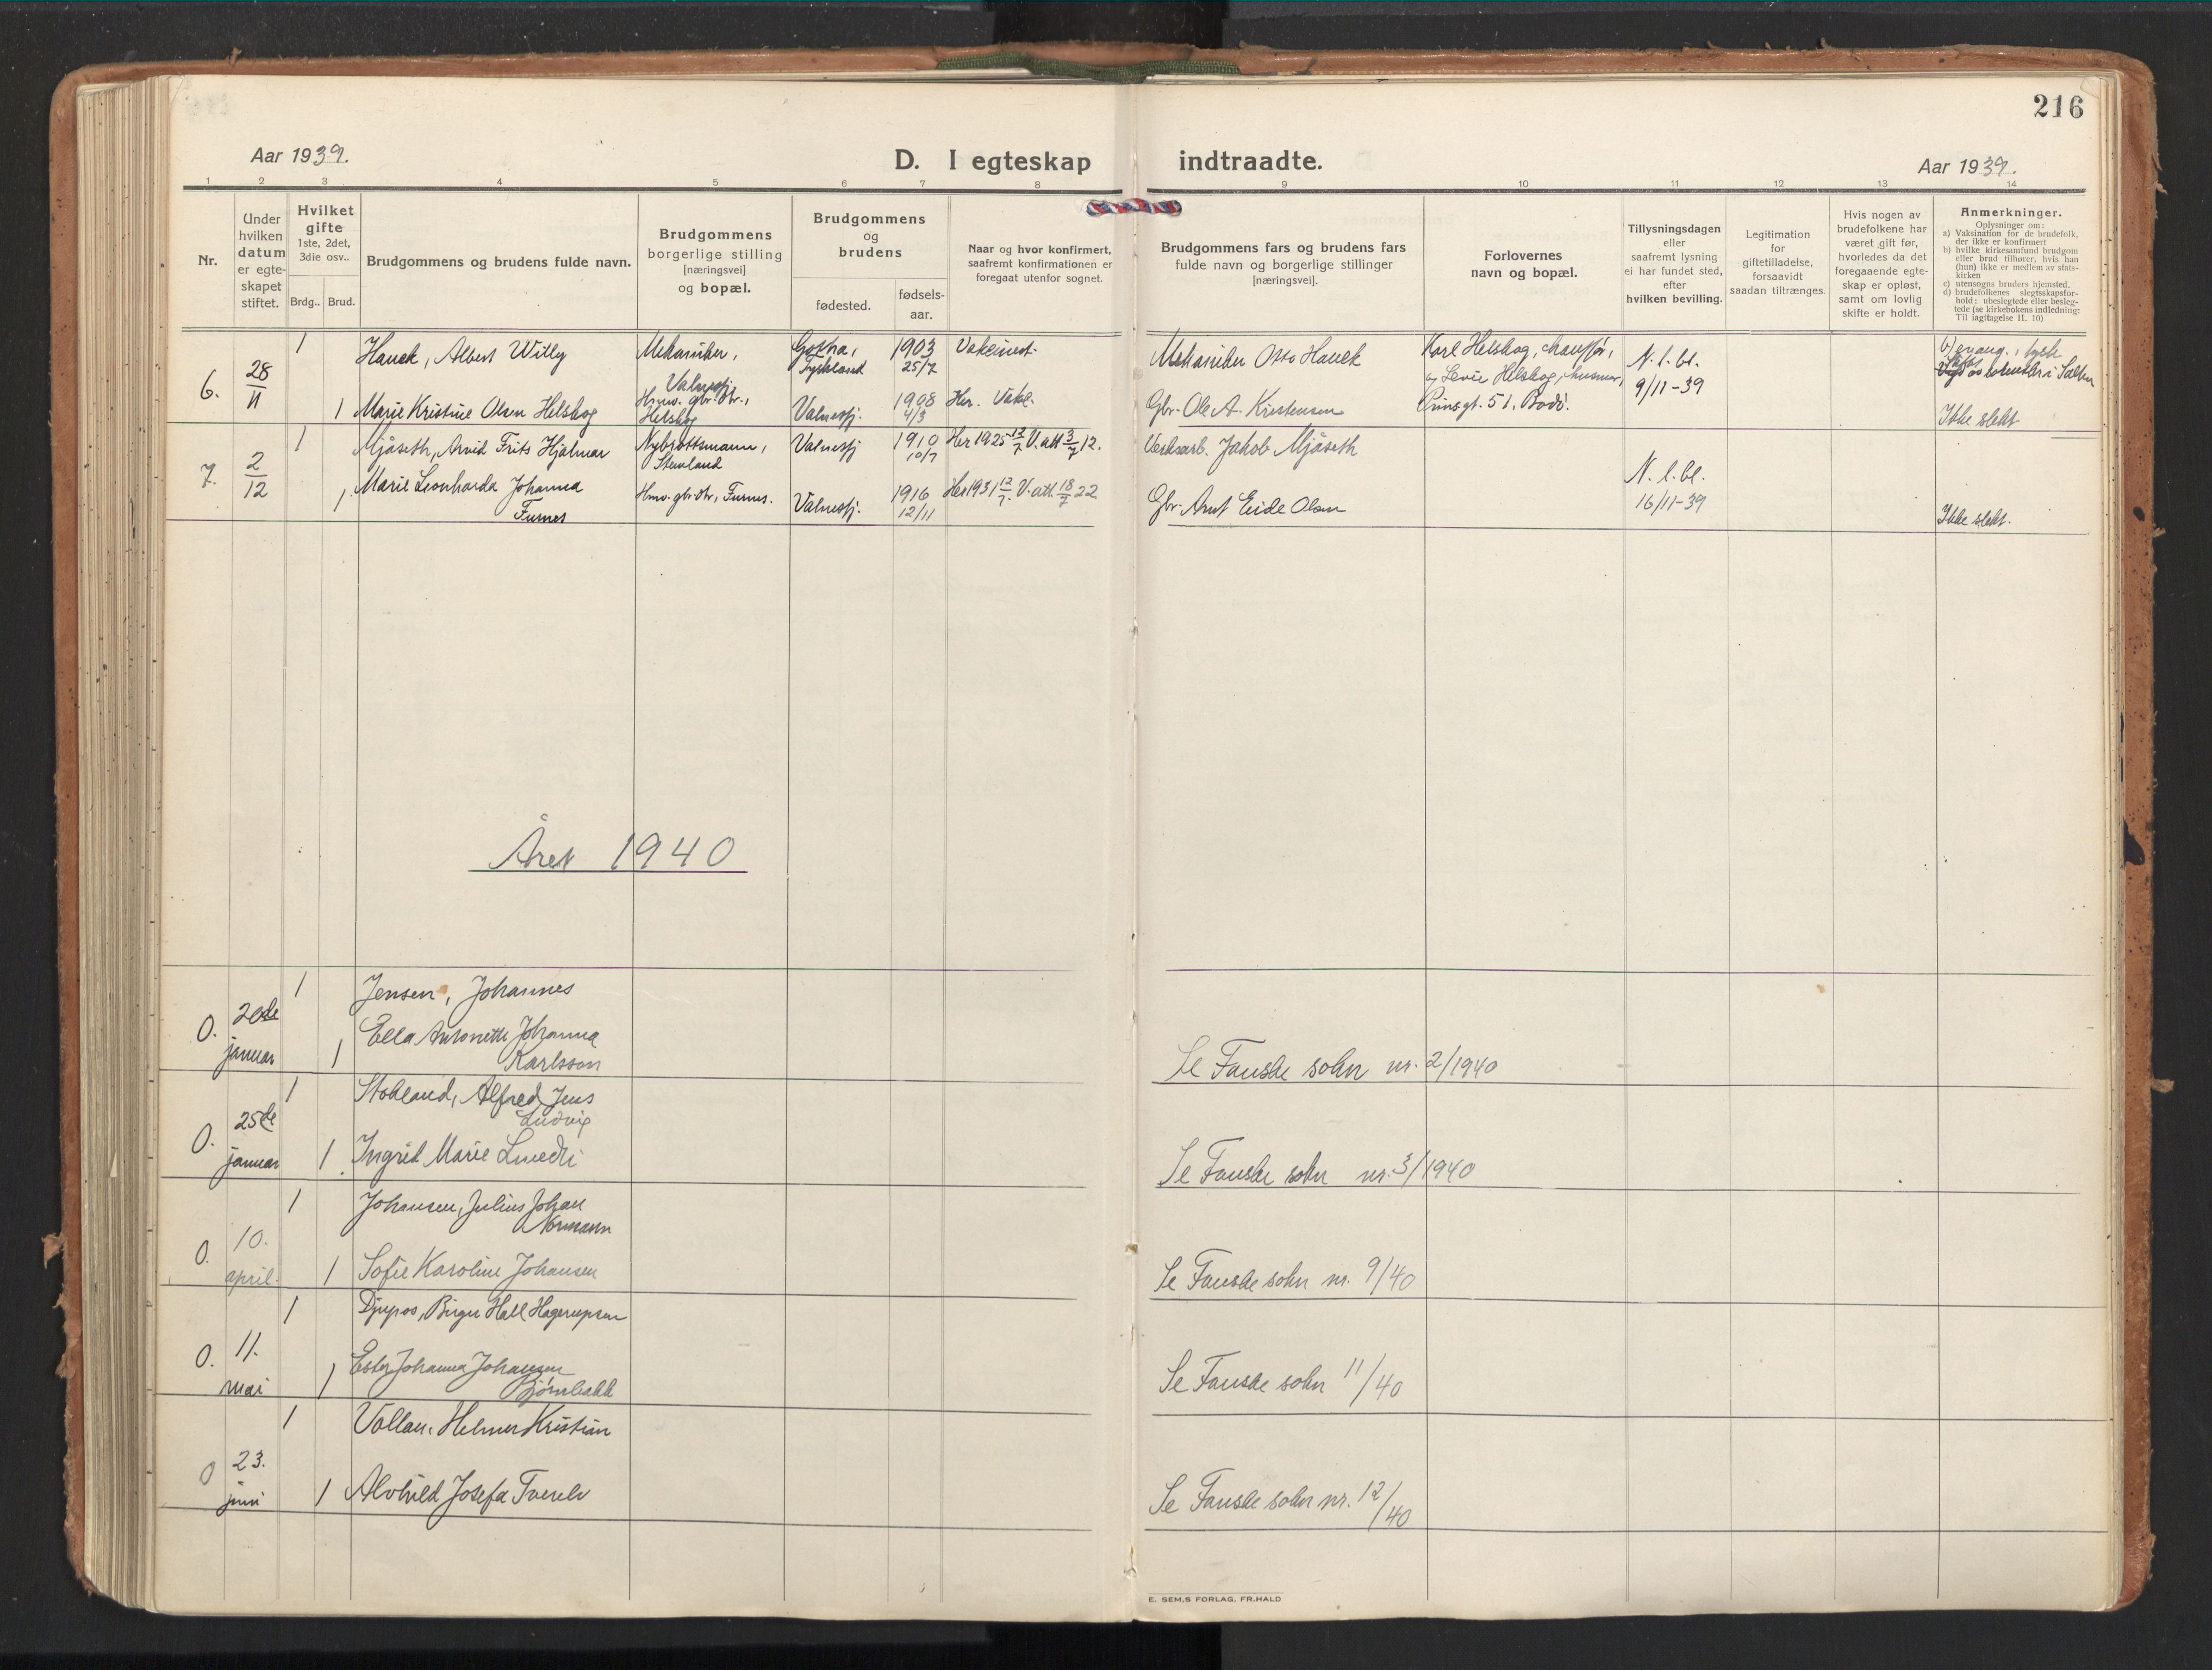 216
Aar 1939.
D. I egteskap indtraadte.
Aar 1939.
1 2 3 4 5 6 7 8 9 10 11 12 13 14
Nr.
Under
hvilken
datum
er egte-
skapet
stiftet.
Hvilket
gifte
1ste, 2det,
3die osv..
Brdg.. Brud.
Brudgommens og brudens fulde navn.
Brudgommens
borgerlige stilling
[næringsvei]
og bopæl.
Brudgommens
og
brudens
fødested.
fødsels-
aar.
Naar og hvor konfirmert,
saafremt konfirmationen er
foregaat utenfor sognet.
Brudgommens fars og brudens fars
fulde navn og borgerlige stillinger
[næringsvei].
Forlovernes
navn og bopæl.
Tillysningsdagen
eller
saafremt lysning
ei har fundet sted,
efter
hvilken bevilling.
Legitimation
for
giftetilladelse,
forsaavidt
saadan tiltrænges.
Hvis nogen av
brudefolkene har
været gift før,
hvorledes da det
foregaaende egte-
skap er opløst,
samt om lovlig
skifte er holdt.
Anmerkninger.
Oplysninger om:
a) Vaksination for de brudefolk,
der ikke er konfirmert
b) hvilke kirkesamfund brudgom
eller brud tilhører, hvis han
(hun) ikke er medlem av stats-
kirken
c) utensogns bruders hjemsted,
d) brudefolkenes slegtsskapsfor-
hold: ubeslegtede eller besleg-
tede (se kirkebokens indledning:
Til iagttagelse II. 10)
6.
28/11
1
Hauck, Albert Willy
Mekaniker,
Valnesfj.
Gotha,
Tyskland
1903
25/7
Mekaniker Otto Hauck
Karl Helskog, chauffør,
Levie Helskog, husmor,
Prinsgt. 51, Bodø.
N. l. bl.
9/11-39
b) evang.,
1
Marie Kristine Olsen Helskog
Hmv. gbr. dtr.,
Helskog
Valnesfj.
1908
4/3
Her. Vakl.
Gbr. Ole A. Kristensen
Ikke slekt
7.
2/12
1
Mjåseth, Arvid Frits Hjalmar
Nybrottsmann,
Stemland
Valnesfj
1910
10/7
Her 1925 12/7 V. att 3/7 12.
Verksarb. Jakob Mjåseth
N. l. bl.
16/11-39
1
Marie Leonharda Johanna
Furnes
Hmv. gbr. dtr, Furnes.
Valnesfj.
1916
12/11
Her 1931 12/7. V. att. 18/7 22
Gbr. Arnt Eide Olsen
Ikke slekt.
Året 1940
0.
20de
januar
1
Jensen, Johannes
1
Ella Antonette Johanna
Karlsson
Se Fauske sokn nr. 2/1940
0.
25de
januar
1
Stokland, Alfred Jens
Ludvig
1
Ingrid Marie
Se Fauske sokn nr. 3/1940
0.
10.
april.
1
Johansen, Julius Johan
Normann
1
Sofie Karoline Johansen
Se Fauske sokn nr. 9/40
0.
11.
mai
1
Djupos, Birger Hall Hagerupsen
1
Ester Johanna Johansen
Bjørnbakk
Se Fauske sokn 11/40
0
23.
juni
1
Vollan, Helmer Kristian
1
Alvhild Josefa Tverelv
Se Fauske sokn nr. 12/40
E. SEM,S FORLAG, FR.HALD